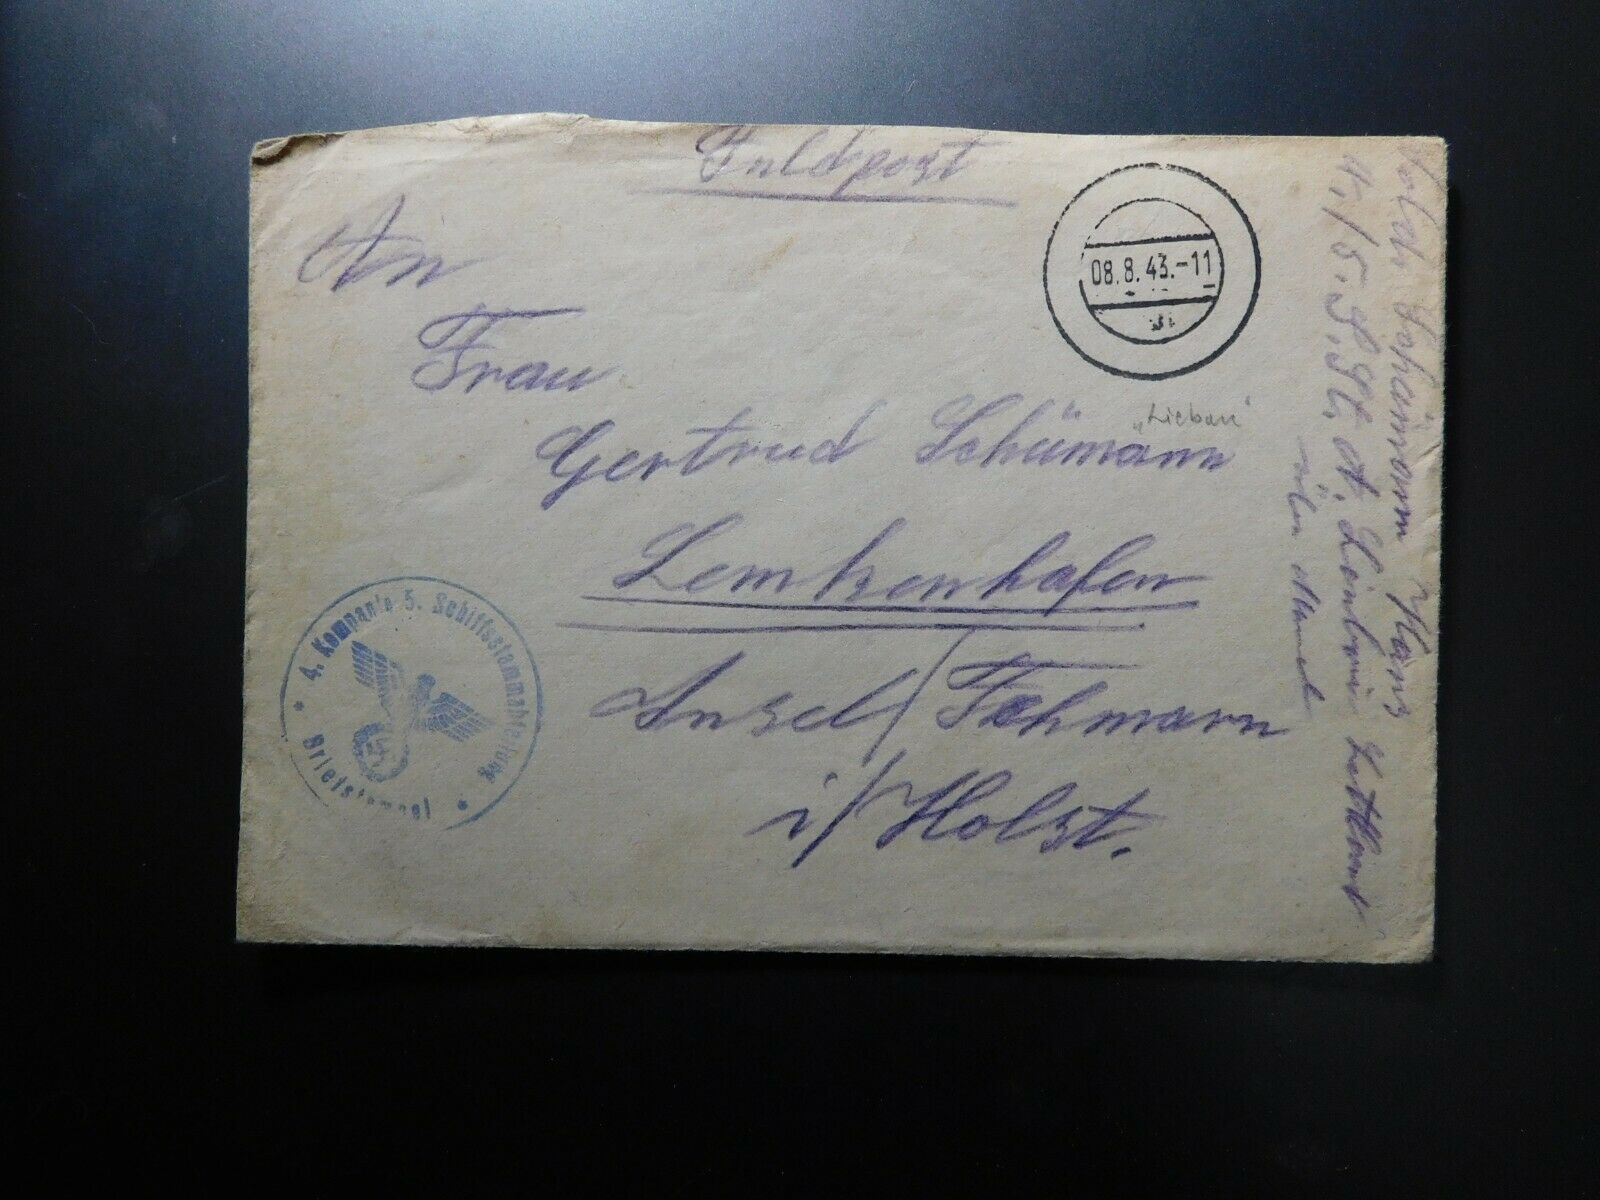 Feldpost
An
Frau
Gertrud Schümann
Lemkenhafen
Insel/Fehmarn
i/Holst.
08.8.43.-11
"Liebau"
4. Kompanie 5. Schiffsstammabteilung
* Briefstempel *
Schümann Hans
4./5. S. St. A. Lettland
über Memel